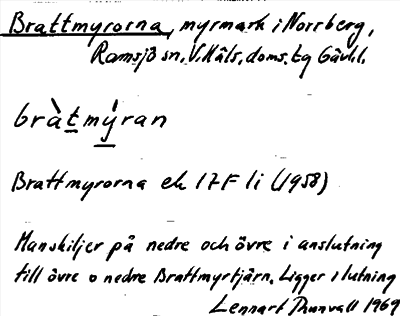 Brattmyrorna, myrmark i Norrberg,
Ramsjö sn, V. Häls. doms. tg Gävl. l.
bràt mýran
Brattmyrorna ek 17F li (1958)
Manskiljer på nedre och övre i anslutning
till övre o nedre Brattmyrtjärn. Ligger i lutning
Lennart Thunvall 1969